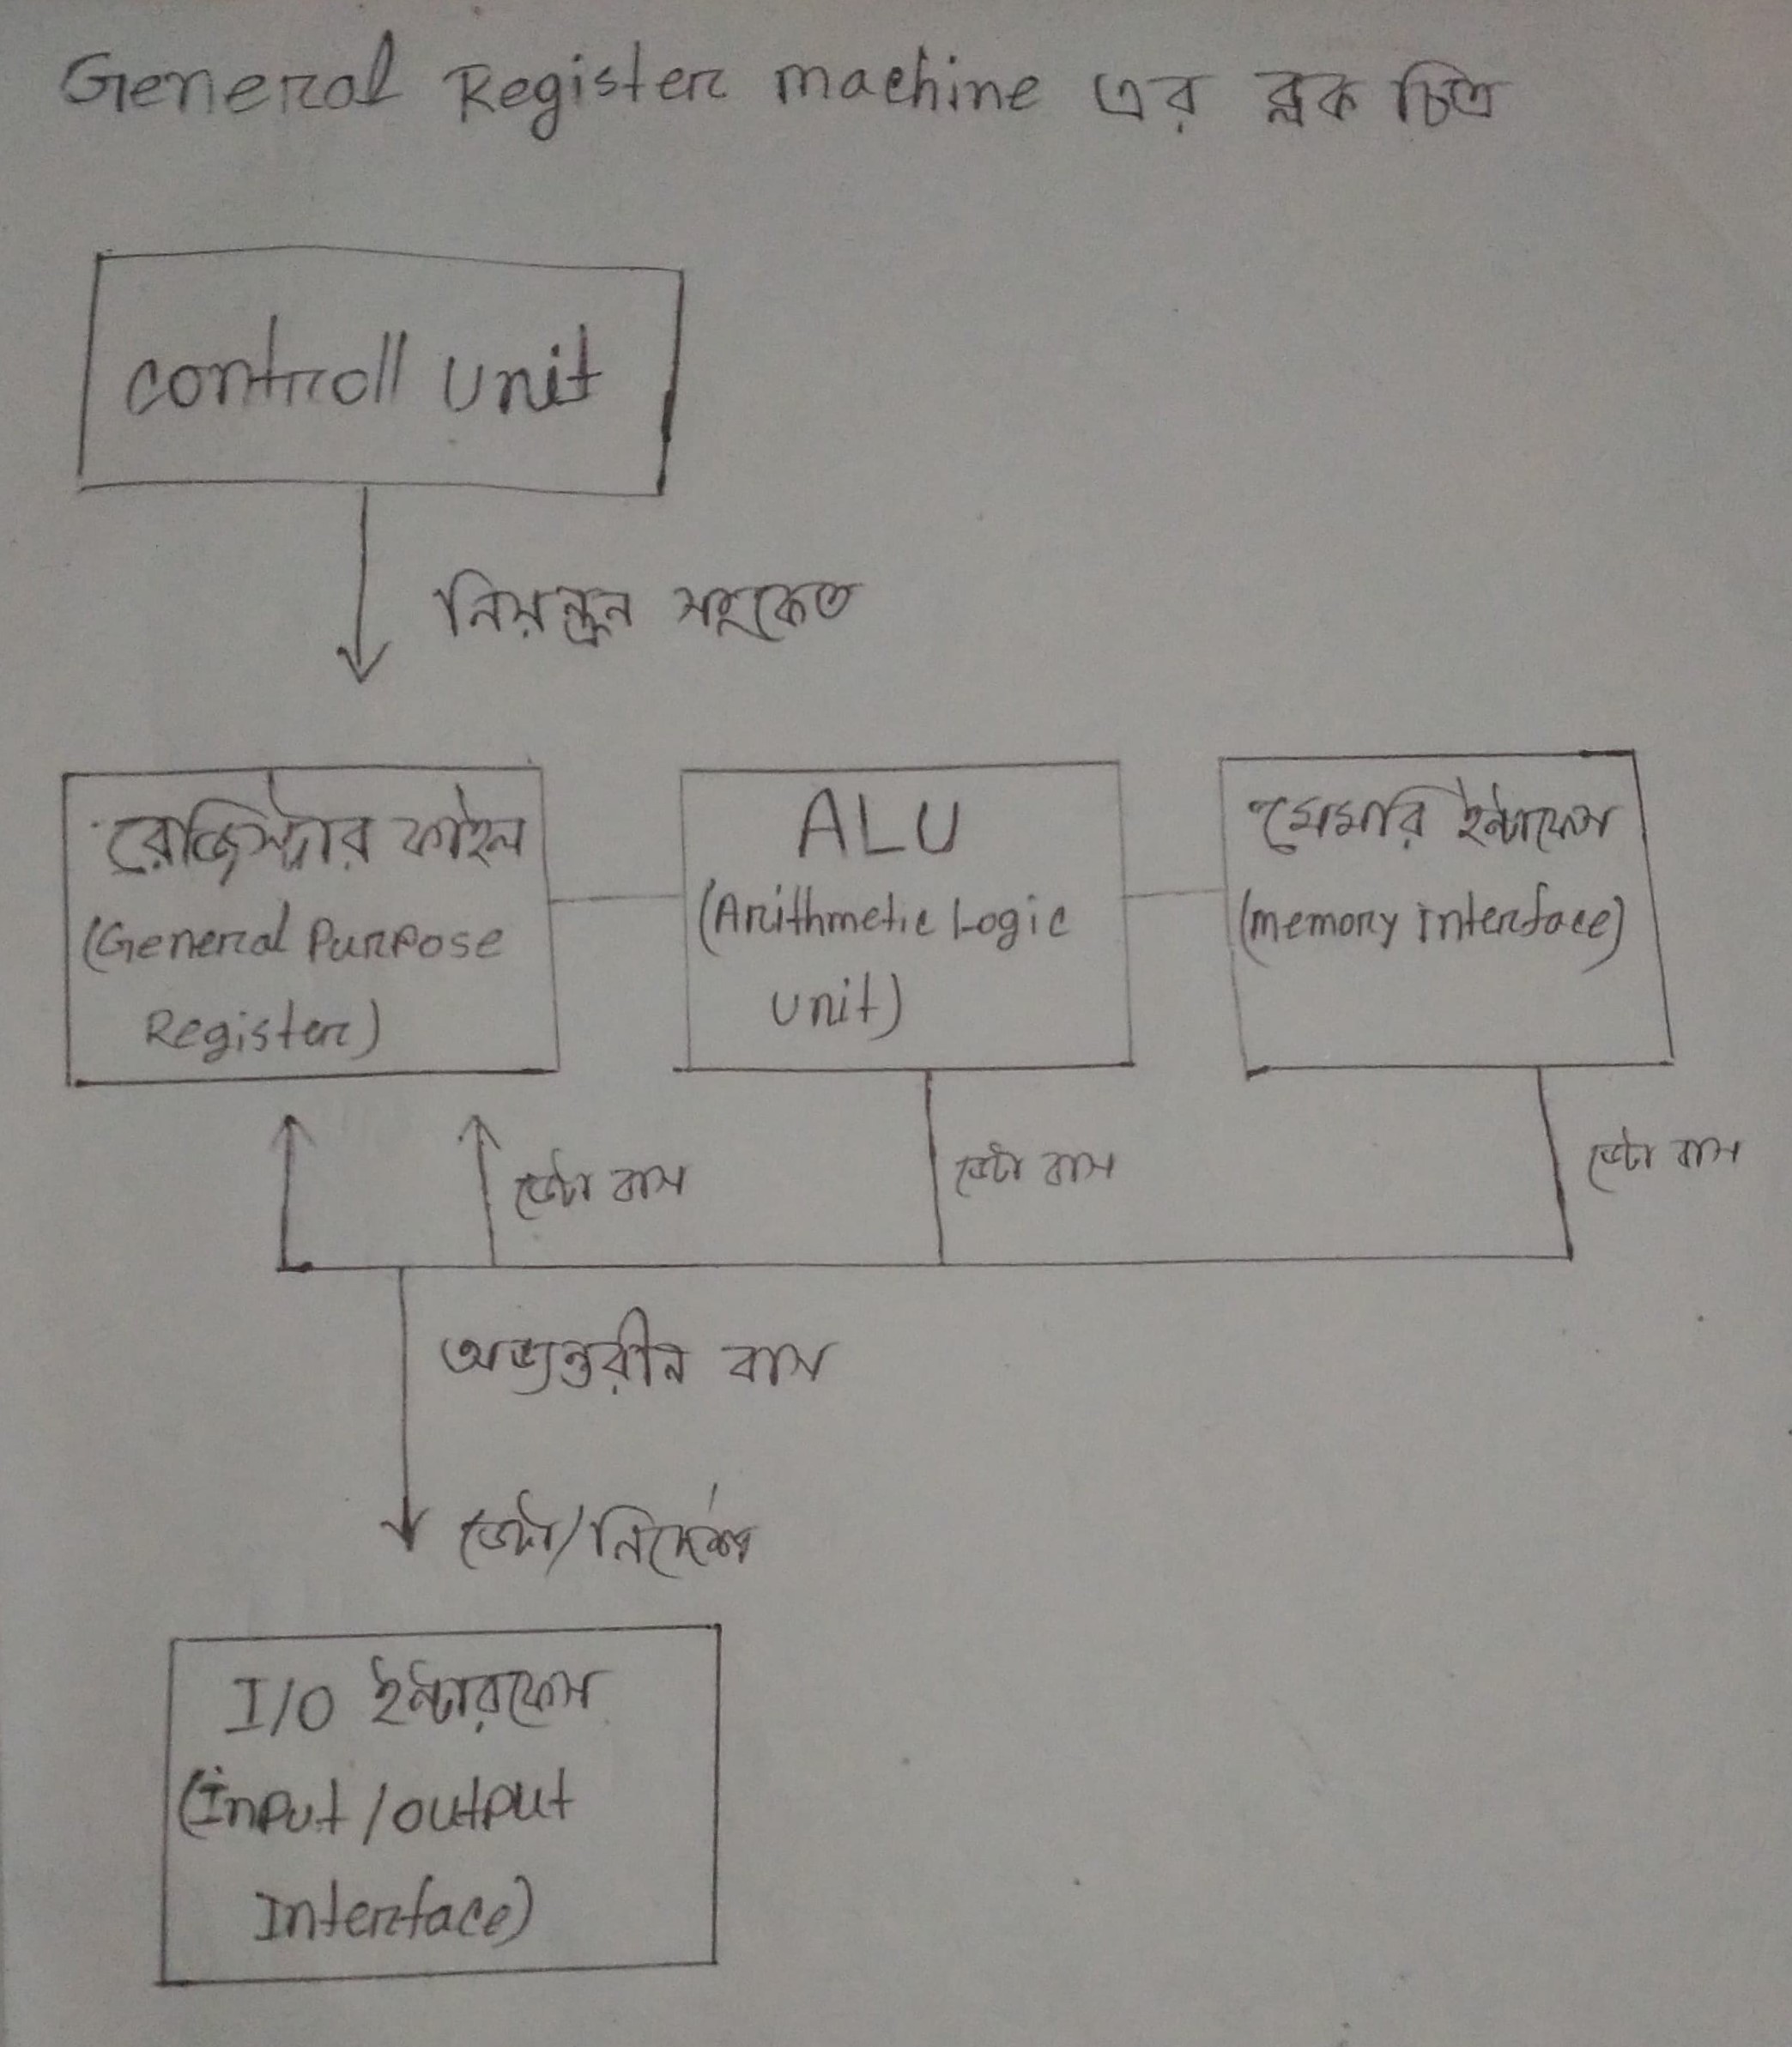 General Register machine এর ব্লক চিত্র
controll unit
নিয়ন্ত্রন সংকেত
রেজিস্ট্রার ফাইল
(General Purpose
Register)
ALU
(Arithmetic Logic
unit)
মেমরি ইন্টাফেস
(memory interface)
ডেটা বাস
ডেটা বাস
ডেটা বাস
অভ্যন্তরীন বাস
ডেটা/নির্দেশ
I/O ইন্টারফেস
(Input/output
Interface)